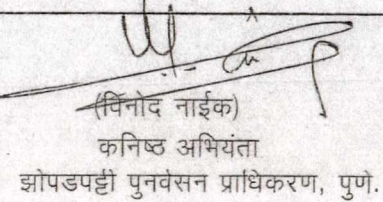 (विनोद नाईक)
कनिष्ठ अभियंता
झोपडपट्टी पुनर्वसन प्राधिकरण, पुणे.